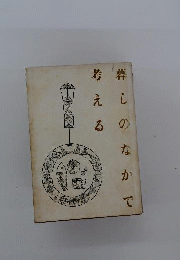 暮しのなかで
考える